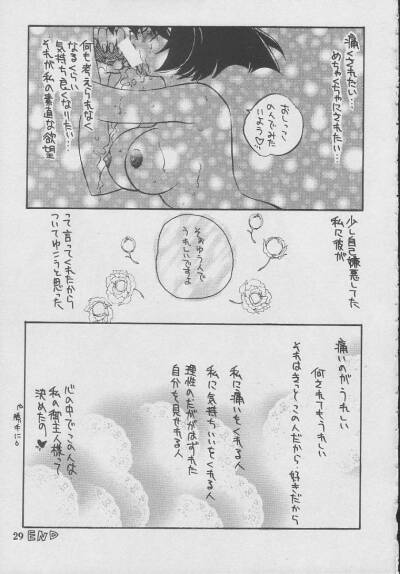 痛くされたい…
めちゃくちゃにされたい…
おしっこ
のんでみた
いよう♡
何も考えられなく
なるくらい
気持ち良くなりたい…
それが私の素直な欲望
少し自己嫌悪してた
私に彼が
そおゆう人で
うれしいですよ
って言ってくれたから
ついてゆこうと思った
痛いのがうれしい
何されてもうれしい
それはきっとこの人だから・好きだから
私に痛いをくれる人
私に気持ちいいをくれる人
理性のたががはずれた
自分を見せれる人
心の中でこの人は
私の御主人様って
決めたの♥
29 END